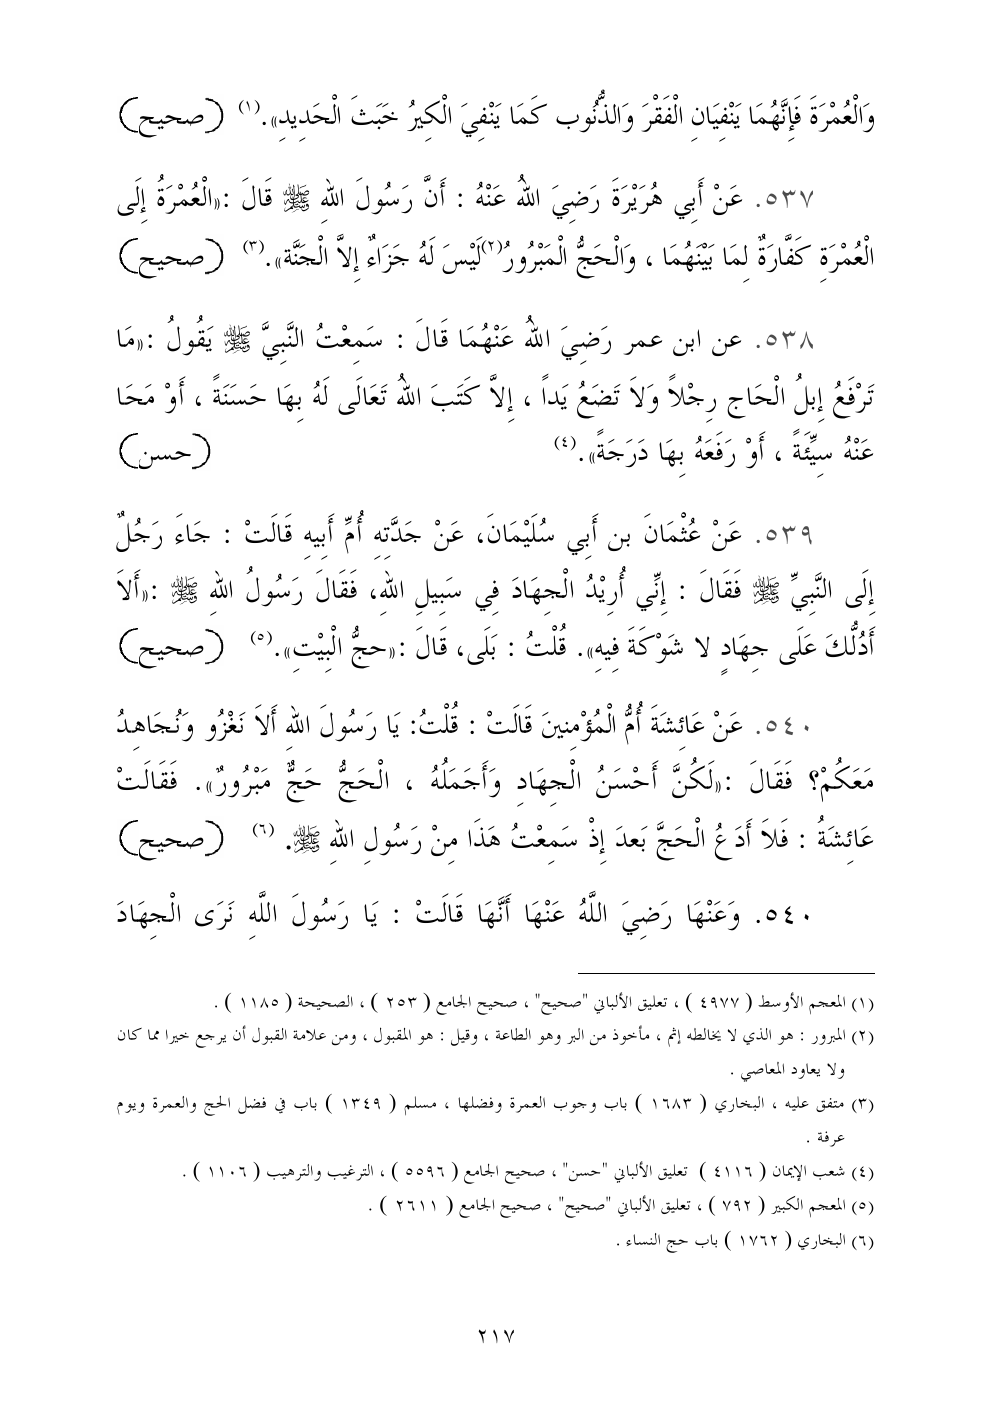 وَالْعُمْرَةَ فَإِنَّهُمَا يَنْفِيَانِ الْفَقْرَ وَالذُّنُوب كَمَا يَنْفِيَ الْكِيرُ خَبَثَ الْحَدِيدِ». (١) (صحيح)
٥٣٧. عَنْ أَبِي هُرَيْرَةَ رَضِيَ اللهُ عَنْهُ : أَنَّ رَسُولَ اللهِ ﷺ قَالَ :«الْعُمْرَةُ إِلَى
الْعُمْرَةِ كَفَّارَةٌ لِمَا بَيْنَهُمَا ، وَالْحَجُّ الْمَبْرُورُ(٢)لَيْسَ لَهُ جَزَاءٌ إِلاَّ الْجَنَّة». (٣) (صحيح)
٥٣٨. عن ابن عمر رَضِيَ اللهُ عَنْهُمَا قَالَ : سَمِعْتُ النَّبِيَّ ﷺ يَقُولُ :«مَا
تَرْفَعُ إِبِلُ الْحَاج رِجْلاً وَلاَ تَضَعُ يَداً ، إِلاَّ كَتَبَ اللهُ تَعَالَى لَهُ بِهَا حَسَنَةً ، أَوْ مَحَا
عَنْهُ سيِّئَةً ، أَوْ رَفَعَهُ بِهَا دَرَجَةً». (٤) (حسن)
٥٣٩. عَنْ عُثْمَانَ بن أَبِي سُلَيْمَانَ، عَنْ جَدَّتِهِ أُمِّ أَبِيهِ قَالَتْ : جَاءَ رَجُلٌ
إِلَى النَّبِيِّ ﷺ فَقَالَ : إِنِّي أُرِيْدُ الْجِهَادَ فِي سَبِيلِ اللهِ، فَقَالَ رَسُولُ اللهِ ﷺ :«أَلاَ
أَدُلُّكَ عَلَى جِهَادٍ لا شَوْكَةَ فِيهِ». قُلْتُ : بَلَى، قَالَ :«حجُّ الْبَيْت». (٥) (صحيح)
٥٤٠. عَنْ عَائِشَةَ أُمُّ الْمُؤْمِنينَ قَالَتْ : قُلْتُ: يَا رَسُولَ اللهِ أَلاَ نَغْزُو وَنُجَاهِدُ
مَعَكُمْ؟ فَقَالَ :«لَكُنَّ أَحْسَنُ الْجِهَادِ وَأَجَمَلُهُ ، الْحَجُّ حَجٌّ مَبْرُورٌ». فَقَالَتْ
عَائِشَةُ : فَلاَ أَدَعُ الْحَجَّ بَعدَ إِذْ سَمِعْتُ هَذَا مِنْ رَسُولِ اللهِ ﷺ. (٦) (صحيح)
٥٤٠. وَعَنْهَا رَضِيَ اللَّهُ عَنْهَا أَنَّهَا قَالَتْ : يَا رَسُولَ اللَّهِ نَرَى الْجِهَادَ
(١) المعجم الأوسط ( ٤٩٧٧ ) ، تعليق الألباني "صحيح" ، صحيح الجامع ( ٢٥٣ ) ، الصحيحة ( ١١٨٥ ) .
(٢) المبرور : هو الذي لا يخالطه إثم ، مأخوذ من البر وهو الطاعة ، وقيل : هو المقبول ، ومن علامة القبول أن يرجع خيرا مما كان
ولا يعاود المعاصي .
(٣) متفق عليه ، البخاري ( ١٦٨٣ ) باب وجوب العمرة وفضلها ، مسلم ( ١٣٤٩ ) باب في فضل الحج والعمرة ويوم
عرفة .
(٤) شعب الإيمان ( ٤١١٦ ) تعليق الألباني "حسن" ، صحيح الجامع ( ٥٥٩٦ ) ، الترغيب والترهيب ( ١١٠٦ ) .
(٥) المعجم الكبير ( ٧٩٢ ) ، تعليق الألباني "صحيح" ، صحيح الجامع ( ٢٦١١ ) .
(٦) البخاري ( ١٧٦٢ ) باب حج النساء .
٢١٧